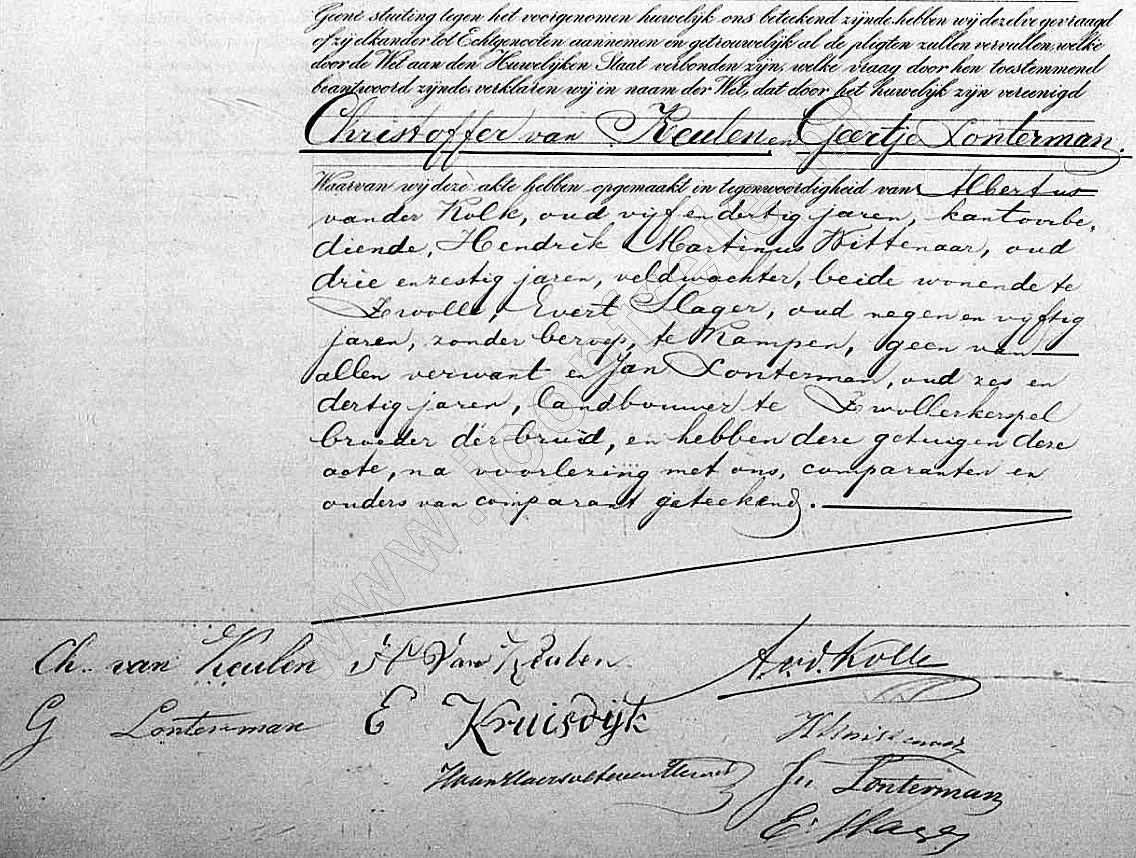 Geene stuiting tegen het voorgenomen huwelijk ons beteekend zijnde, hebben wij dezelve gevraagd
of zij elkander tot Echtgenooten aannemen en getrouwelijk al de pligten zullen vervullen, welke
door de Wet aan den Huwelijken Staat verbonden zijn, welke vraag door hen toestemmend
beantwoord zijnde, verklaren wij in naam der Wet, dat door het huwelijk zijn vereenigd
Christoffer van Keulen en Geertje Lonterman.
Waarvan wij deze akte hebben opgemaakt in tegenwoordigheid van Albertus
van der Kolk, oud vijf en dertig jaren, kantoorbe,
diende, Hendrik Martinus Wittenaar, oud
drie en zestig jaren, veldwachter, beide wonende te
Zwolle, Evert Slager, oud negen en vijftig
jaren, zonder beroep, te Kampen, geen van
allen verwant en Jan Lonterman, oud zes en
dertig jaren, landbouwer te Zwollerkerspel
broeder der bruid, en hebben deze getuigen deze
acte, na voorlezing met ons, comparanten en
ouders van comparant geteekend.
Ch. van Keulen H Van Keulen A.v.d. Kolk
G Lonterman E Kruisdijk
Jn Lonterman
E. Slager
www.